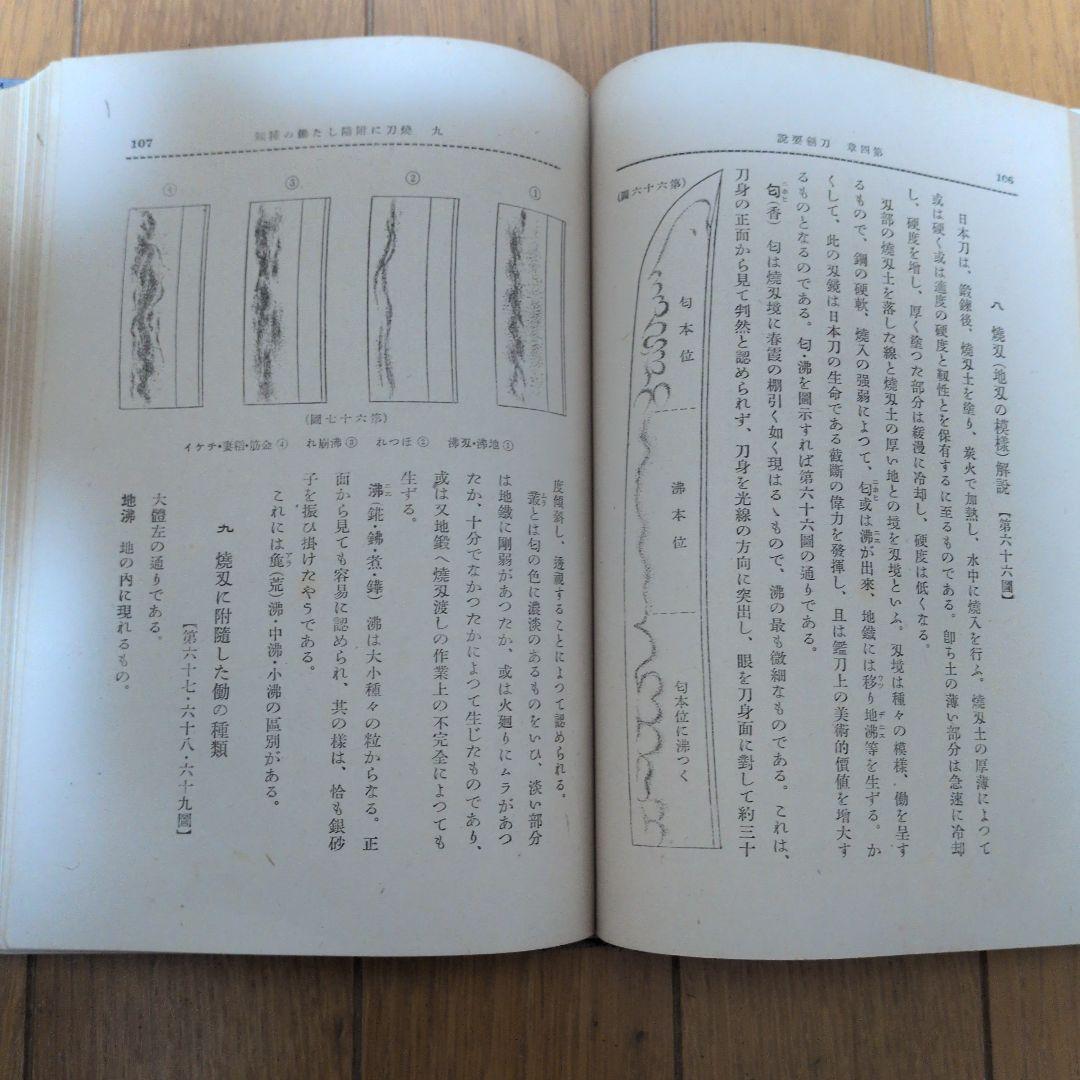 第四章 刀劍要説
106
八 燒刃(地刃の模樣)解説 【第六十六圖】
日本刀は、鍛錬後、燒刃土を塗り、炭火で加熱し、水中に燒入を行ふ。燒刃土の厚薄によつて
或は硬く或は適度の硬度と靱性とを保有するに至るものである。卽ち土の薄い部分は急速に冷却
し、硬度を增し、厚く塗つた部分は緩漫に冷却し、硬度は低くなる。
刃部の燒刃土を落した線と燒刃土の厚い地との境を刃境といふ。刃境は種々の模樣、働を呈す
るもので、鋼の硬軟、燒入の强弱によつて、匂或は沸が出來、地鐵には移り地沸等を生ずる。か
くして、此の刃鏡は日本刀の生命である截斷の偉力を發揮し、且は鑑刀上の美術的價値を增大す
るものとなるのである。匂・沸を圖示すれば第六十六圖の通りである。
匂(香) 匂は燒刃境に春霞の棚引く如く現はるゝもので、沸の最も微細なものである。これは、
刀身の正面から見て判然と認められず、刀身を光線の方向に突出し、眼を刀身面に對して約三十
(第六十六圖)
匂本位
沸本位
匂本位に沸つく
九 燒刀に附隨した働の種類
107
①
②
③
④
(第六十七圖)
①地沸・刃沸 ②ほつれ ③沸崩れ ④金筋・稻妻・チケイ
度傾斜し、透視することによつて認められる。
叢とは匂の色に濃淡のあるものをいひ、淡い部分
は地鐵に剛弱があつたか、或は火廻りにムラがあつ
たか、十分でなかつたかによつて生じたものであり、
或は又地鍛へ燒刃渡しの作業上の不完全によつても
生ずる。
沸(錵・鉘・煮・鏵) 沸は大小種々の粒からなる。正
面から見ても容易に認められ、其の樣は、恰も銀砂
子を振ひ掛けたやうである。
これには麁(荒)沸・中沸・小沸の區別がある。
九 燒刃に附隨した働の種類
【第六十七・六十八・六十九圖】
大體左の通りである。
地沸 地の內に現れるもの。